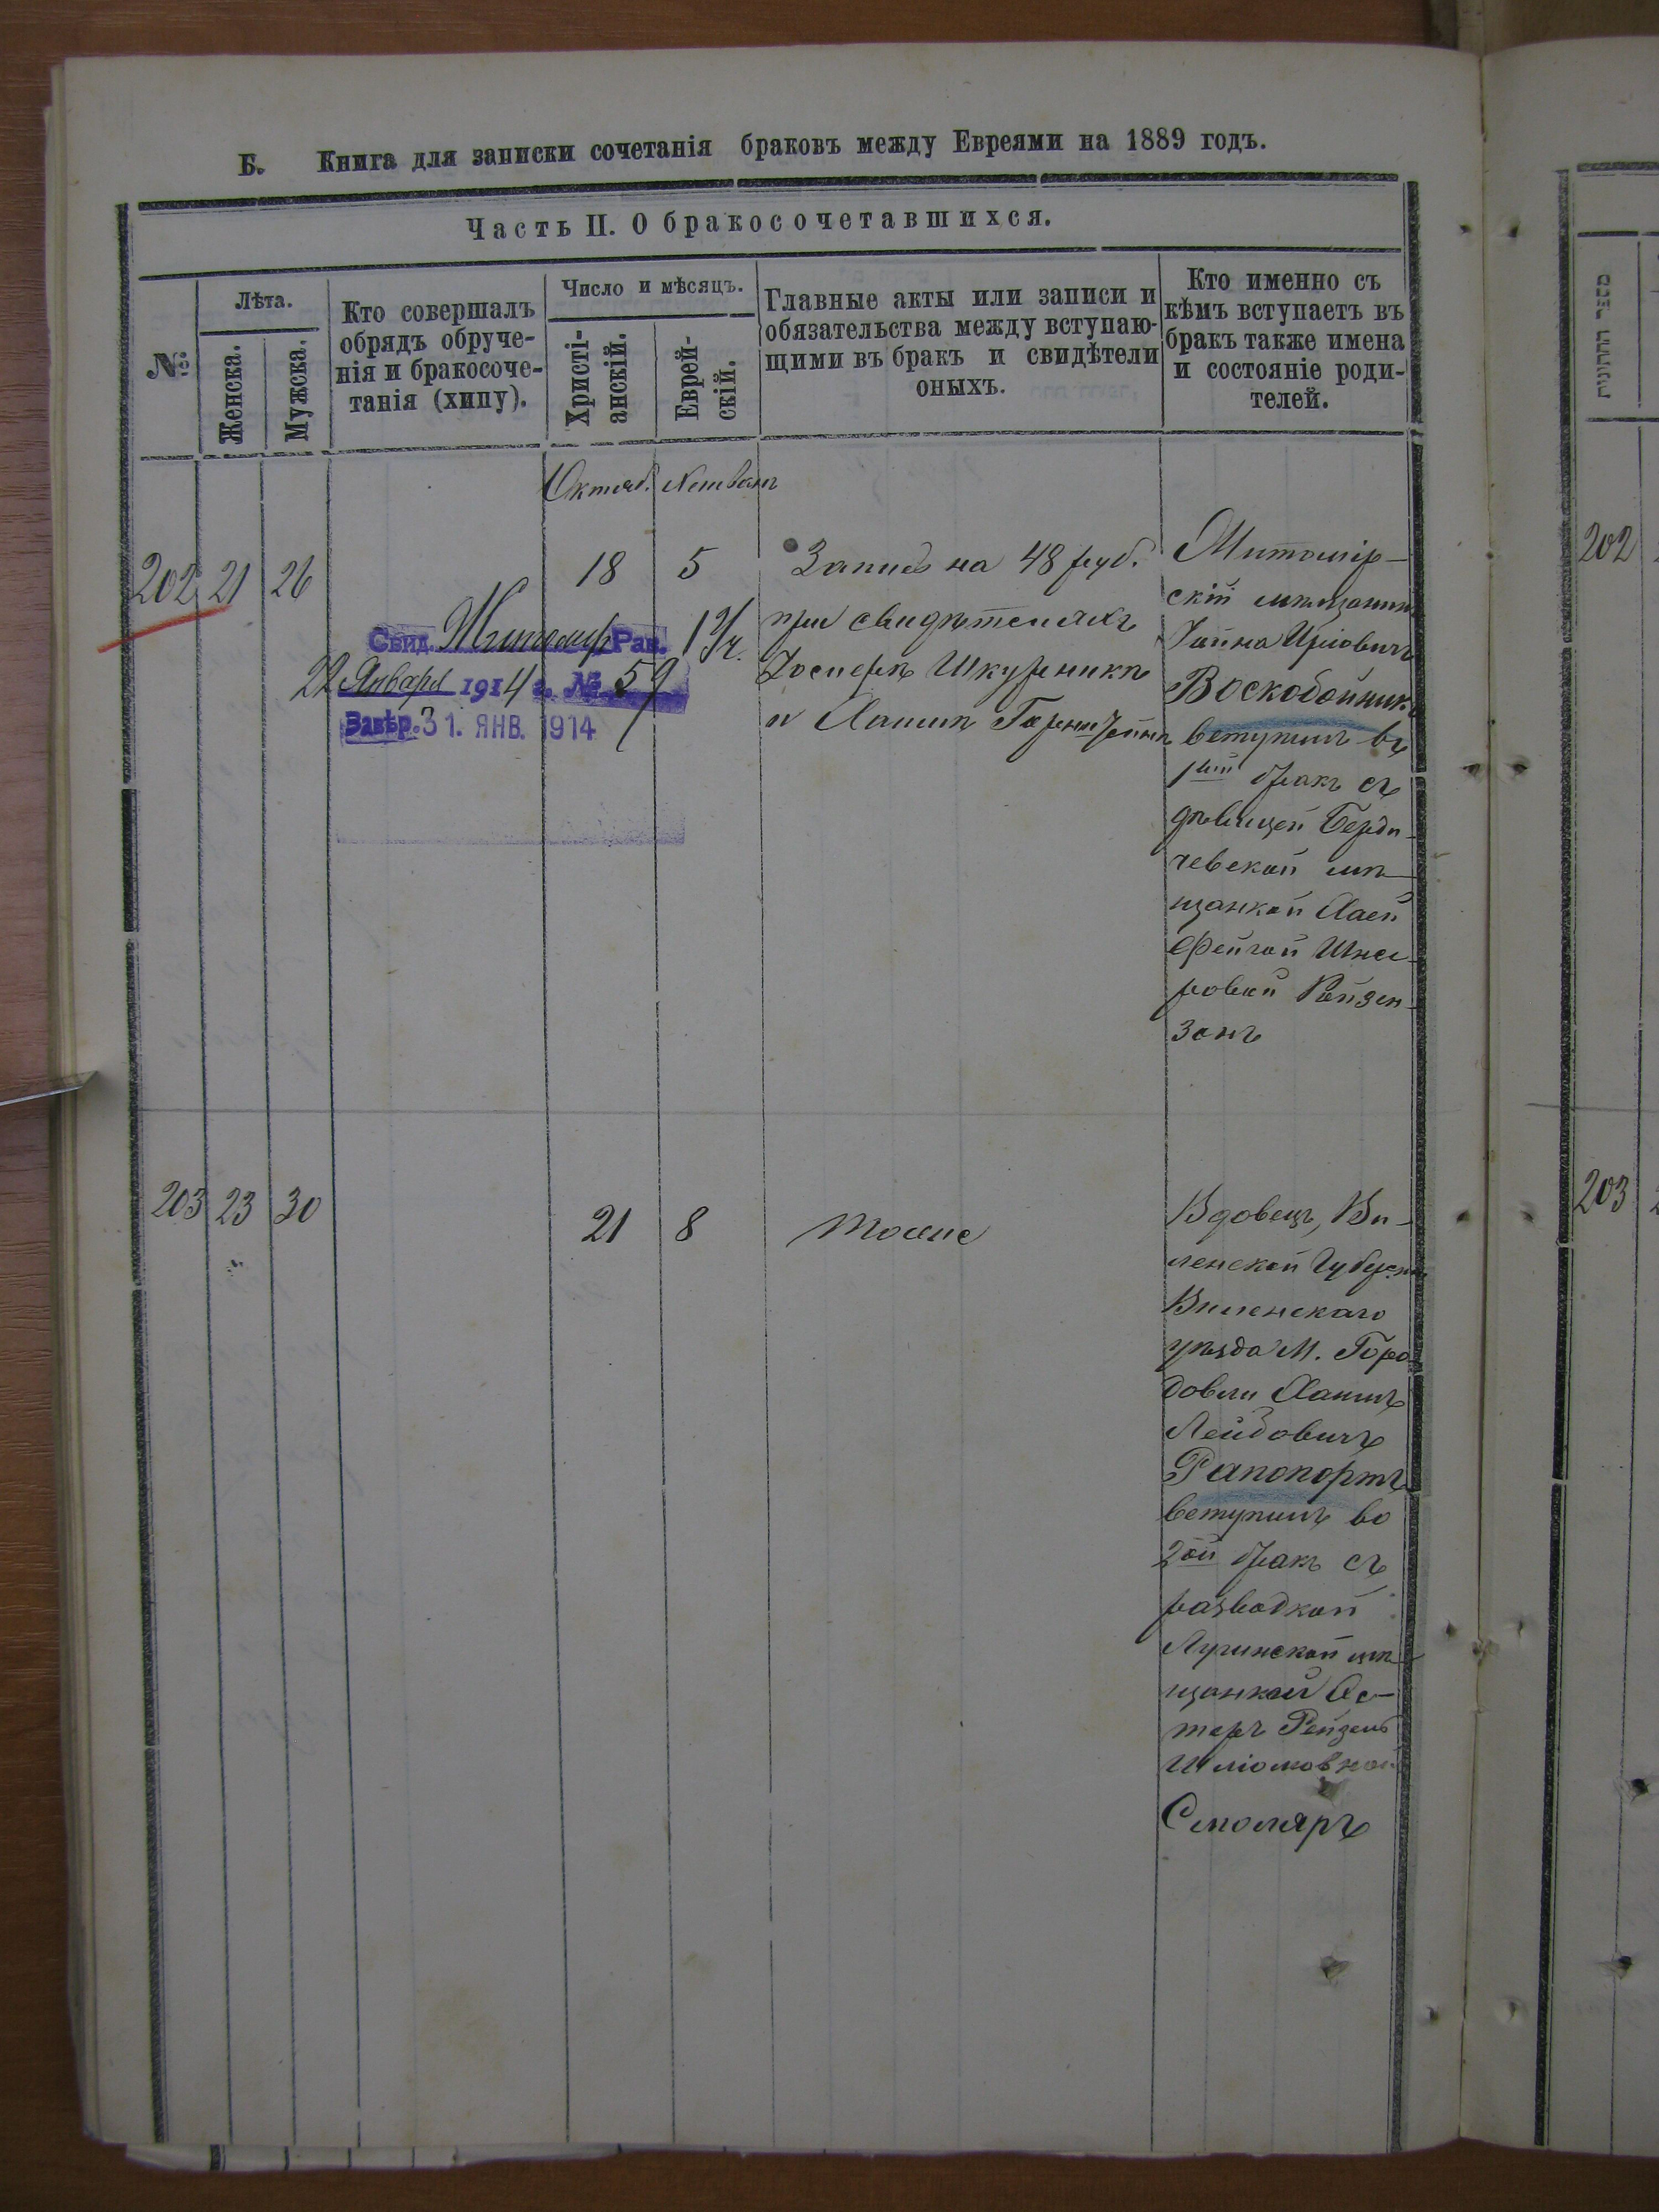 Б. Книга для записки сочетанія браковъ между Евреями на 1889 годъ.
Часть II. О бракосочетавшихся.
№
Лѣта.
Женска.
Мужска.
Кто совершалъ
обрядъ обруче-
нія и бракосоче-
танія (хипу).
Число и мѣсяцъ.
Христі-
анскій.
Еврей-
скій.
Главные акты или записи и
обязательства между вступаю-
щими въ бракъ и свидѣтели
оныхъ.
Кто именно съ
кѣмъ вступаетъ въ
бракъ также имена
и состояніе роди-
телей.
Октяб. Хешванъ
202 21 26
18 5
Запись на 48 руб.
при свидѣтеляхъ
Іосифѣ Шкурникѣ
и Хаимѣ
Свид. Житомир Рав. 1 Уч.
22 Января 1914 г. № 59
Завѣр. 31. ЯНВ. 1914
Житомір-
скій мѣщанинъ
Воскобойникъ
вступилъ въ
1ый бракъ съ
дѣвицей Берди-
чевской мѣ-
щанкой Хаей
Фейгой Шнее-
ровой Ройзен-
зонъ
203 23 30
21 8
тоже
Вдовецъ, Ви-
ленской Губерніи
Виленскаго
уѣзда М. Горо-
довли Хаимъ
Лейбовичъ
Рапопортъ
вступилъ во
2ой бракъ съ
разводкой
Лугинской мѣ-
щанкой Эс-
теръ Рейзель
Шліомовной
Смоляръ
202
203